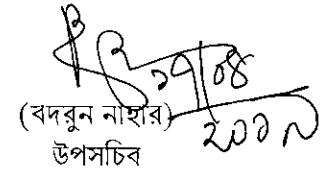 ১৭/০৪
২০১৯
(বদরুন নাহার)
উপসচিব